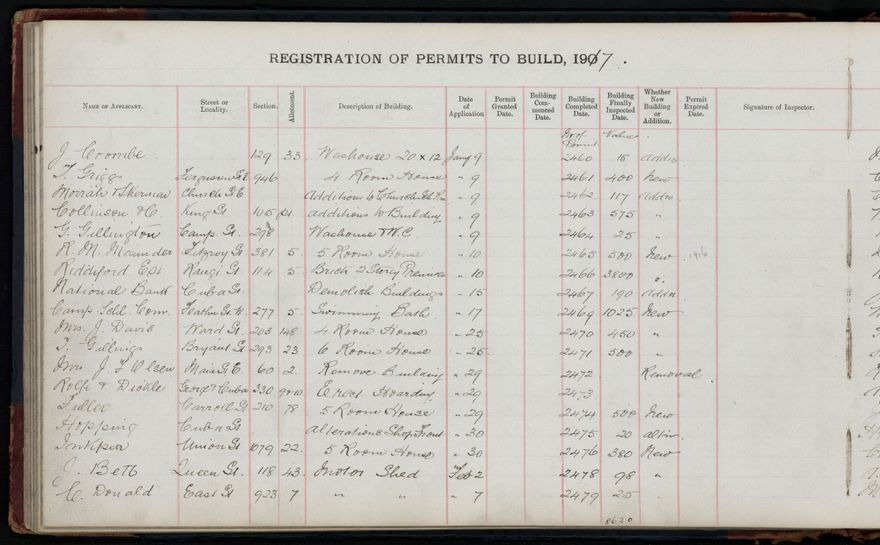 REGISTRATION OF PERMITS TO BUILD, 1917.
Name of Applicant. Street or Locality. Section. Allotment. Description of Building. Date of Application Permit Granted Date. Building Com-menced Date. Building Completed Date. Building Finally Inspected Date. Whether New Building or Addition. Permit Expired Date. Signature of Inspector.
No of Permit Value
J. Coombe 129 33 Washouse 20 x 12 Jany 9 2460 15 Addn
T. Griggs Ferguson St 946 4 Room House " 9 2461 400 New
Church St Additions to Church " 9 2462 117 Addn
Collinson & C. King St 105 Additions to Building " 9 2463 575 "
G. Gillington Camp. St. Washouse & W.C. " 9 2464 25 "
R. M. Maunder Fitzroy St 381 5. 5 Room House " 10 2465 500 New 1916
Riddiford Rangi St 114 5. Brick 2 Storey Premises " 10 2466 3800 "
National Bank Cuba St. Demolish Buildings " 15 2467 190 Addn
Camp Schl. Com. Feathn St. W. 277 5. Swimming Bath " 17 2469 1025 New
Mrs. J. Davis Ward St. 203 148 4 Room House " 25 2470 450 "
T. Bryant St 293 23 6 Room House " 25. 2471 500 "
Mrs J. F Olsen Main St. E. 60 2. Remove Building " 29 2472 Removal.
Rolfe & George & Cuba 330 9 & 10 Erect Hoarding " 29 2473
Fuller Carroll St 210 78 5 Room House " 29 2474 500 New
Hopping Cuba St Alterations Shop Front " 30 2475 20 Altn.
Union St 1079 22. 5 Room House " 30 2476 380 New
J. Bett Queen St. 118 43. Motor Shed Feb 2 2478 98 "
E. Donald East St 923 7 " " " 7 2479 25 "
8620